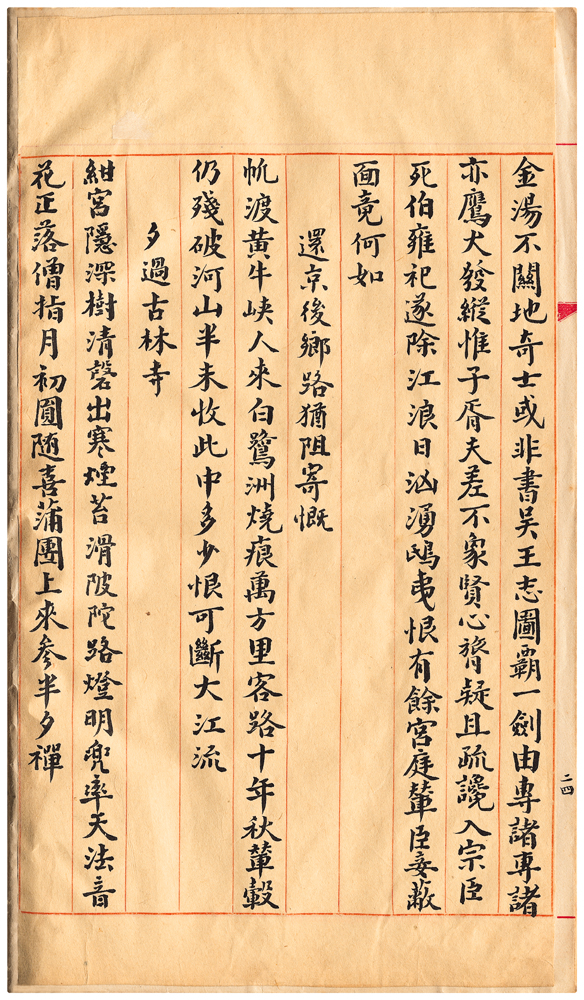 金湯不關地奇士或非書吳王志圖霸一劍由專諸專諸
亦鷹犬發縱惟子胥夫差不象賢心膂疑且疏讒入宗臣
死伯雍祀遂除江浪日洶湧鴟夷恨有餘宮庭輦臣妾蔽
面竟何如
還京後鄉路猶阻寄慨
帆渡黃牛峽人來白鷺洲燒痕萬方里客路十年秋輦轂
仍殘破河山半未收此中多少恨可斷大江流
夕過古林寺
紺宮隱深樹清磬出寒煙苔滑陂陀路燈明兜率天法音
花正落僧指月初圓随喜蒲團上來參半夕禪
二四